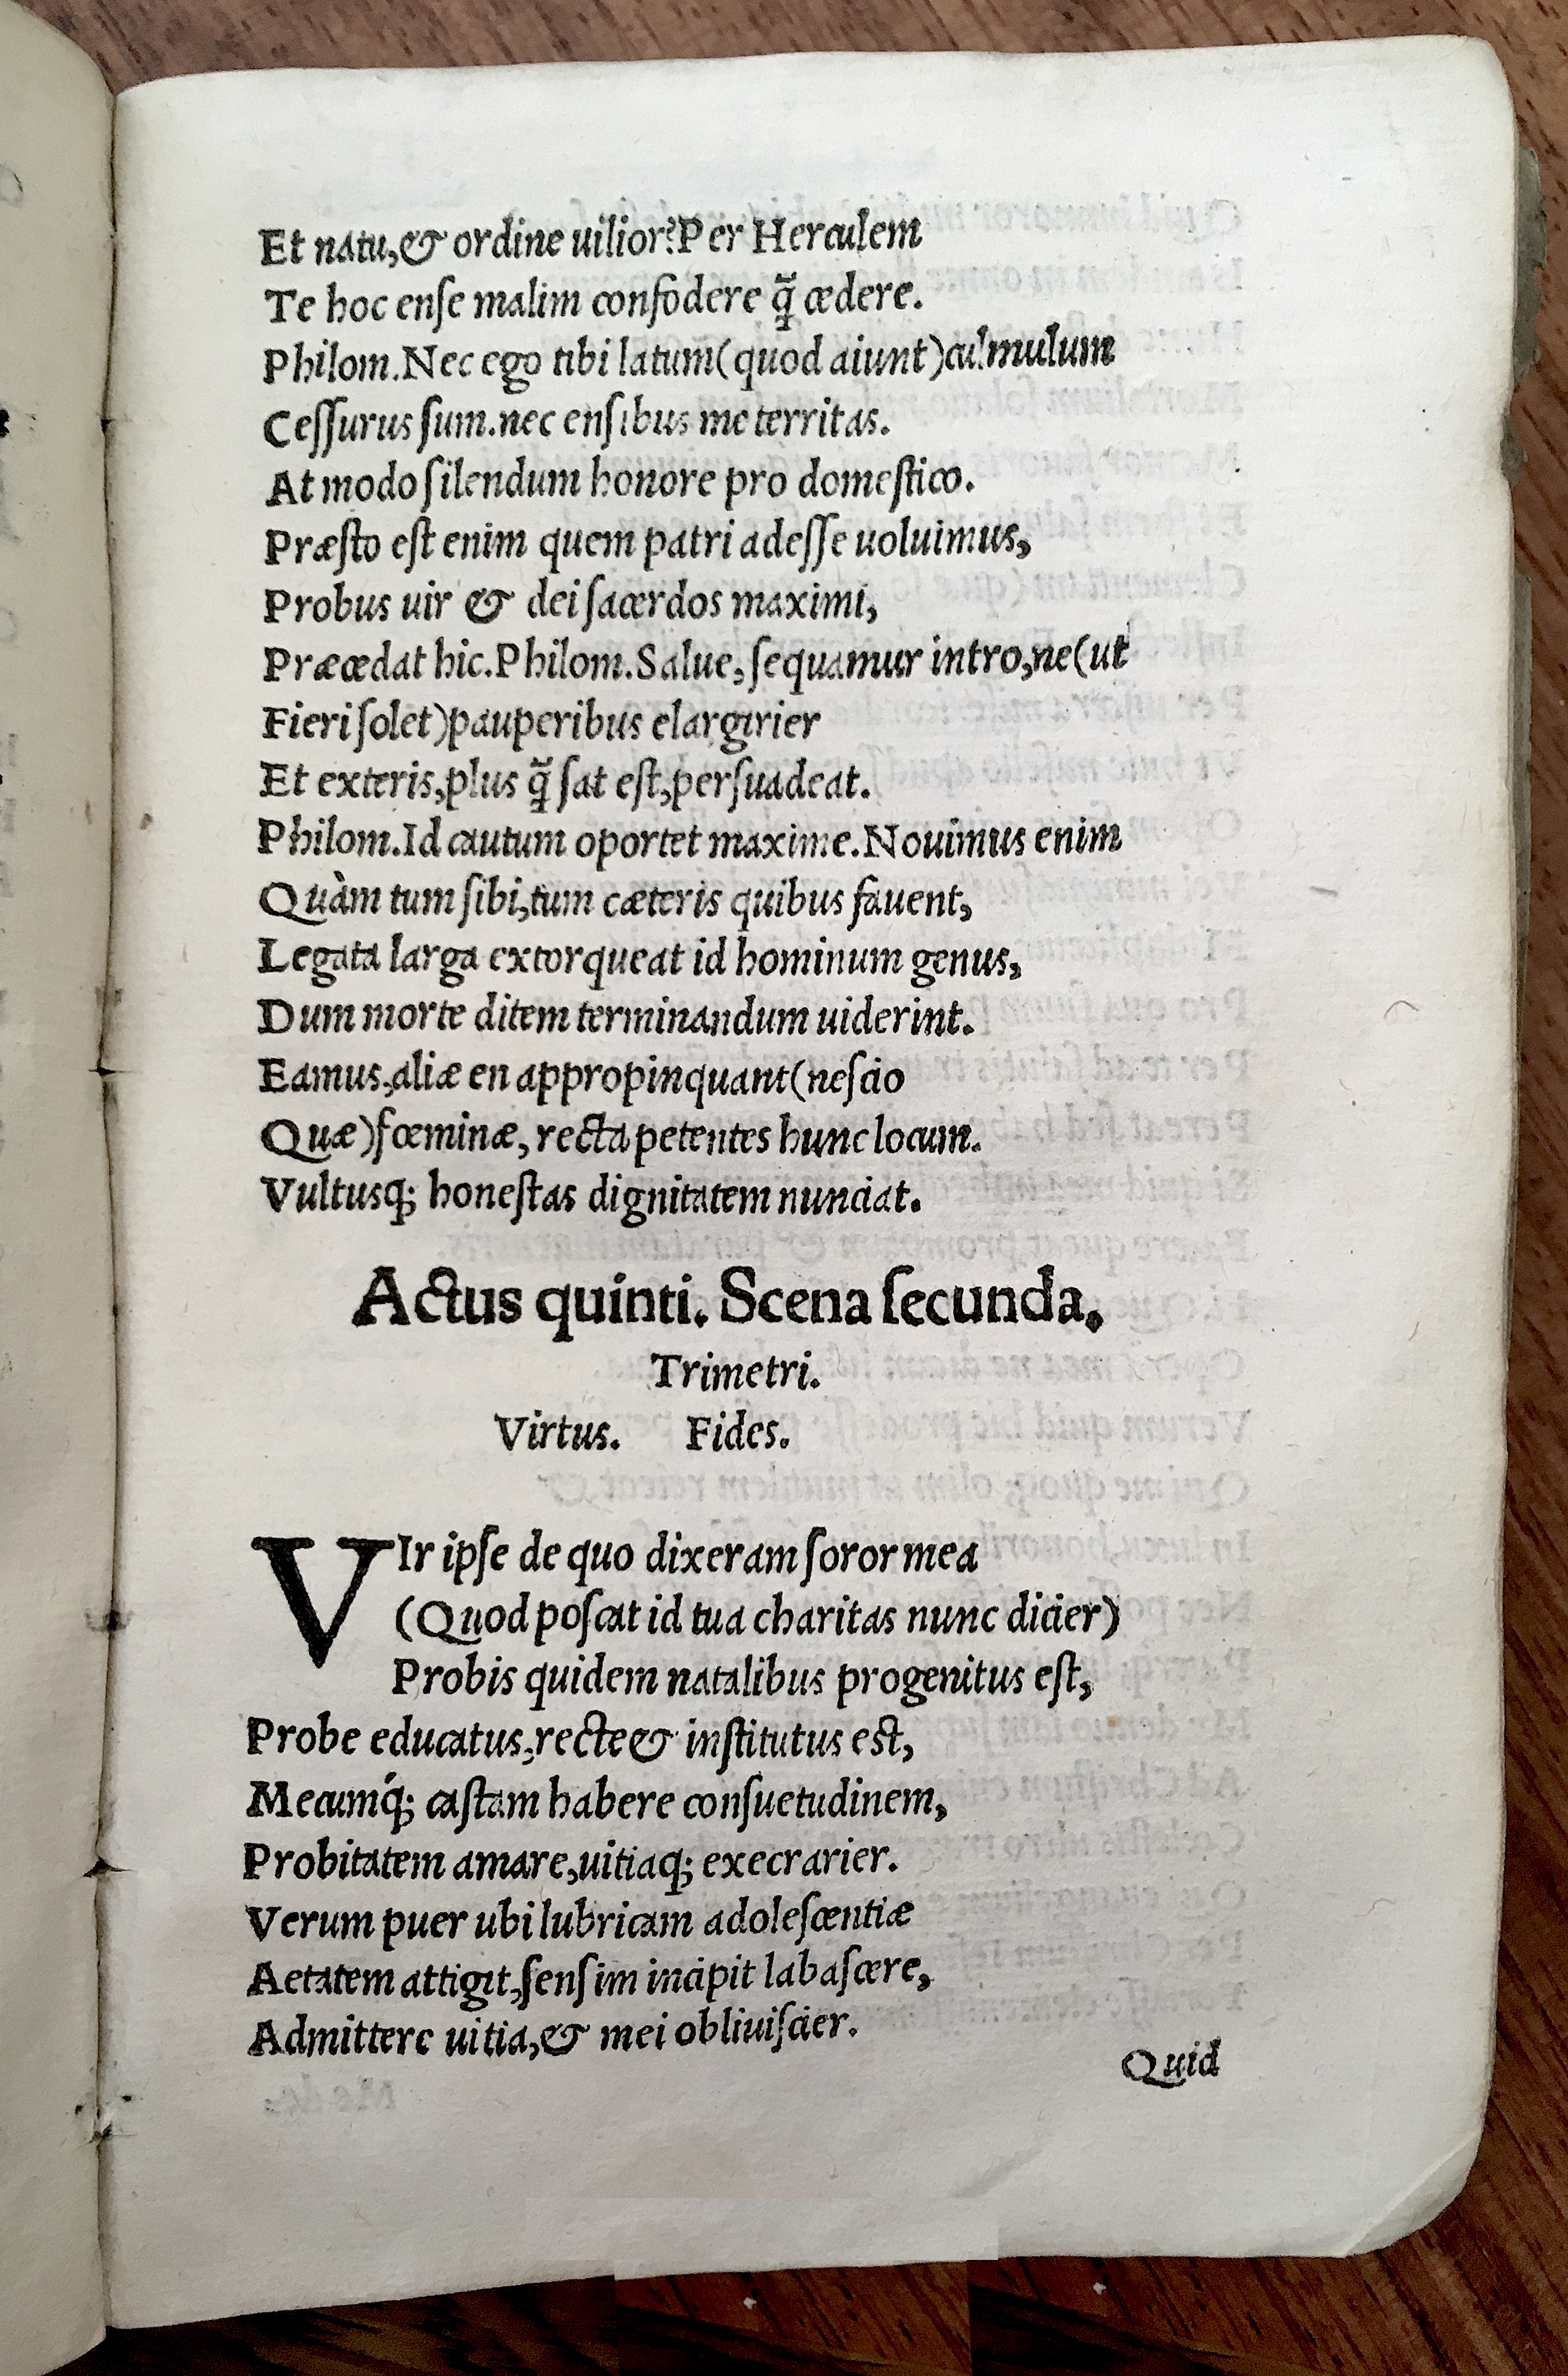 Et natu,& ordine uilior?Per Herculem
Te hoc enſe malim confodere q̃ cædere.
Philom.Nec ego tibi latum(quod aiunt)culmulum
Ceſſurus ſum.nec enſibus me territas.
At modo ſilendum honore pro domeſtico.
Præſto eſt enim quem patri adeſſe uoluimus,
Probus uir & dei ſacerdos maximi,
Præcedat hic.Philom.Salue,ſequamur intro,ne(ut
Fieri ſolet)pauperibus elargirier
Et exteris,plus q̃ ſat eſt,perſuadeat.
Philom.Id cautum oportet maxime.Nouimus enim
Quàm tum ſibi,tum cæteris quibus fauent,
Legata larga extorqueat id hominum genus,
Dum morte ditem terminandum uiderint.
Eamus,aliæ en appropinquant(neſcio
Quæ)fœminæ, recta petentes hunc locum.
Vultusq; honeſtas dignitatem nunciat.
Actus quinti. Scena ſecunda.
Trimetri.
Virtus. Fides.
VIr ipſe de quo dixeram ſoror mea
(Quod poſcat id tua charitas nunc dicier)
Probis quidem natalibus progenitus eſt,
Probe educatus,recte & inſtitutus est,
Mecumq́; caſtam habere conſuetudinem,
Probitatem amare,uitiaq; execrarier.
Verum puer ubi lubricam adoleſcentiæ
Aetatem attigit,ſenſim incipit labaſcere,
Admittere uitia,& mei obliuiſcier.
Quid